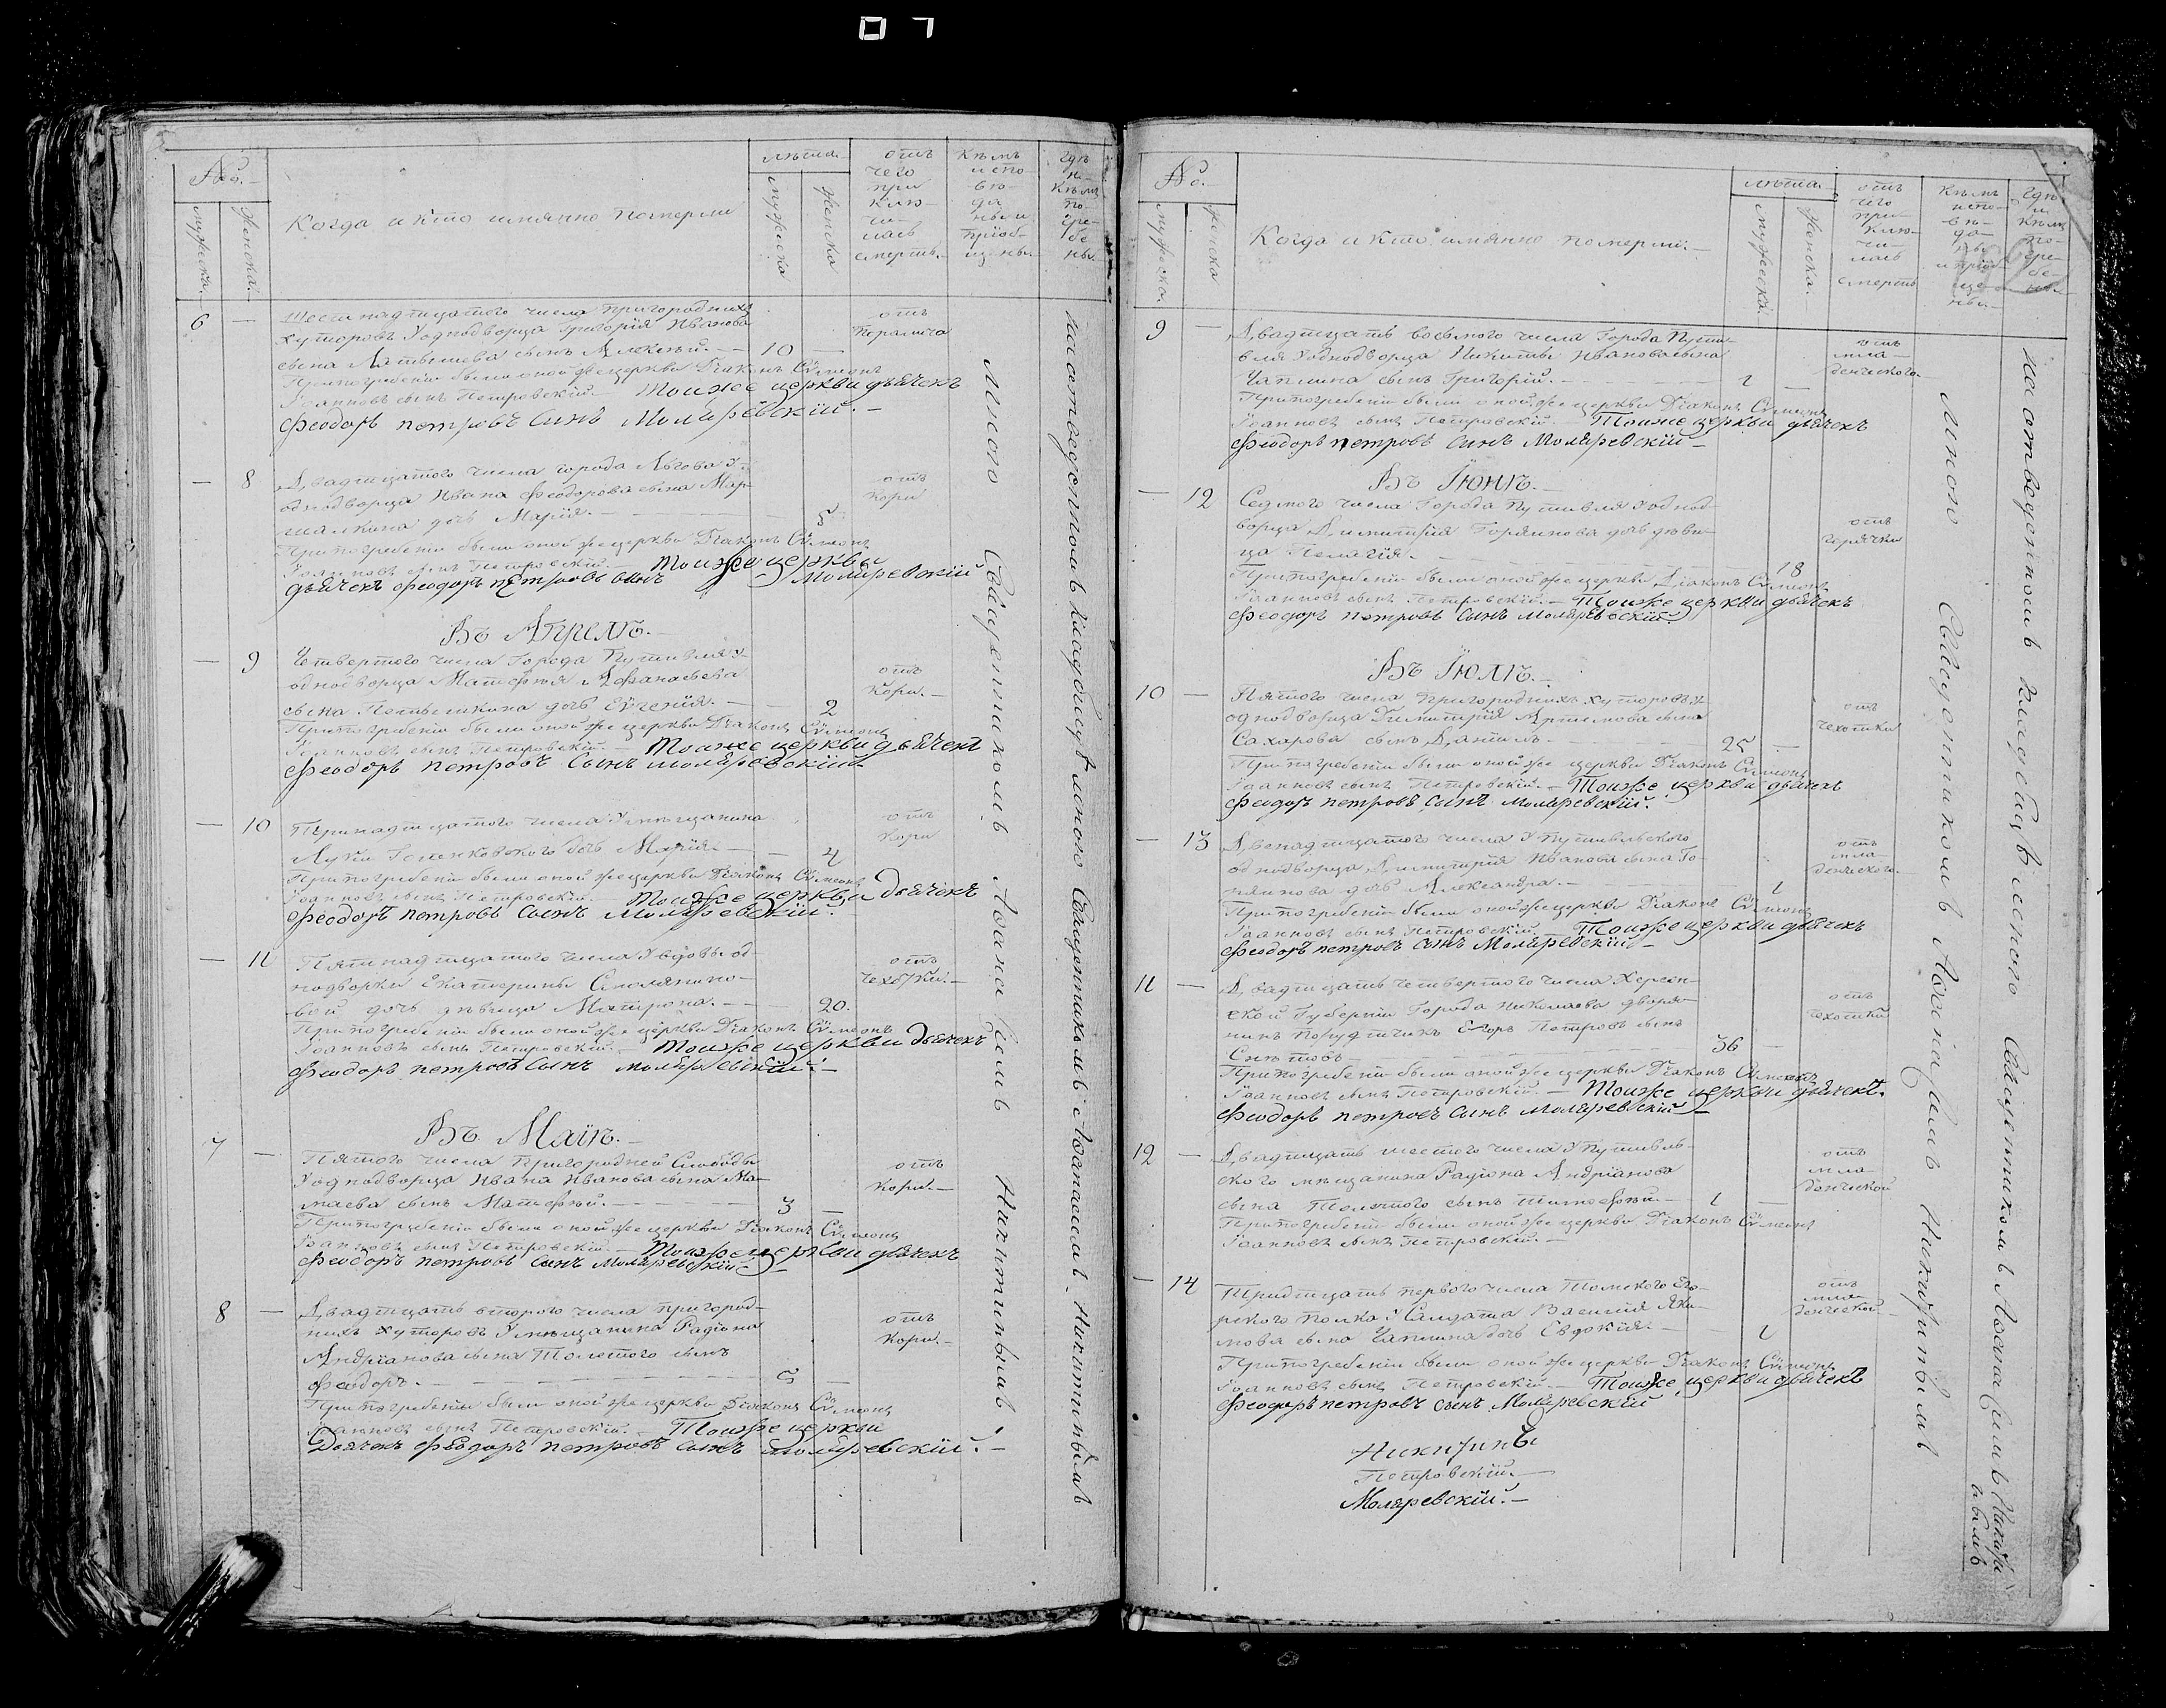 No.
мужеска.
женска.
Когда и кто имянно померли
лѣта.
мужеска
женска
отъ
чего
при
клю-
чи-
лась
смерть.
Кѣмъ
испо
вѣ-
да
ны и
пріоб-
щены.
гдѣ
и
кѣмъ
по-
гре-
бе
ны.
6 —
Шестнадцатого числа пригородныхъ
хуторовъ Уоднодворца Григорія Иванова
сына Латышева сынъ Алексѣй. — 10 —
отъ
Поралича
При погребеніи были оной же церкви Діаконъ Сѵмеонъ
Іоанновъ сынъ Петровскій. — Тоиже церкви дьячекъ
Феодоръ петровъ сынъ Моляревскій. —
— 8
Двадцатого числа города Льгова у
однодворца Ивана Феодорова сына Мар-
шалкина дочь Марія. — 5
отъ
кори
При погребеніи были оной же церкви Діаконъ Сѵмеонъ
Іоанновъ сынъ Петровскій. — Тоиже церкви
дьячекъ феодоръ петровъ сынъ Моляревскій
Въ Апрелѣ. —
— 9
Четвертого числа Города Путивля у-
однодворца Матфея Афанасьева
сына дочь Евгенія. — 2
отъ
кори. —
При погребеніи были оной же церкви Діаконъ Сѵмеонъ
Іоанновъ сынъ Петровскій. — Тоиже церкви дьячекъ
Феодоръ петровъ Сынъ моляревскій
— 10
Тринадцатого числа Умѣщанина
Луки дочь Марія. — 4
отъ
кори
При погребеніи были оной же церкви Діаконъ Сѵмеонъ
Іоанновъ сынъ Петровскій. — Тоиже церкви дьячекъ
Феодоръ петровъ Сынъ Моляревскій.
— 11
Пятнадцатого числа Увдовы од-
нодворки Екатерины Смолянино-
вой дочь дѣвица Матрона. — 20.
отъ
чехотки. —
При погребеніи были оной же церкви Діаконъ Сѵмеонъ
Іоанновъ сынъ Петровскій. — Тоиже церкви дьячекъ
Феодоръ петровъ Сынъ моляревскій. —
Въ Маіѣ. —
7 —
Пятого числа пригородней Слободы
Уоднодворца Ивана Иванова сына Ма-
маева сынъ Матфѣй. — 3 —
отъ
кори. —
При погребеніи были оной же церкви Діаконъ Сѵмеонъ
Іоанновъ сынъ Петровскій. — Тоиже церкви дьячекъ
Феодоръ петровъ Сынъ Моляревскій
8 —
Двадцать второго числа пригород-
ныхъ хуторовъ Умѣщанина Радіона
Андріанова сына Толстого сынъ
Феодоръ. — 5 —
отъ
кори. —
При погребеніи были оной же церкви Діаконъ Сѵмеонъ
Іоанновъ сынъ Петровскій. — Тоиже церкви
Дьячекъ феодоръ петровъ сынъ Моляревскій. —
Мною Священникомъ Никитинымъ
на отведенномъ кладбищѣ мною Священникомъ Никитинымъ
No.
мужеска.
женска
Когда и кто имянно померли. —
лѣта.
мужеска.
женска.
отъ
чего
при-
клю-
чи-
лась
смерть
Кѣмъ
испо-
вѣ-
да-
ны
и пріоб-
ще-
ны.
гдѣ
и
кѣмъ
по-
гре-
бе-
ны.
9
Двадцать восьмого числа Города Пути-
вля Уоднодворца Никиты Иванова сына
Чаплина сынъ Григорій. — 1 —
отъ
мла-
денческого.
При погребеніи были оной же церкви Діаконъ Сѵмеонъ
Іоанновъ сынъ Петровскій. — Тоиже церкви дьячекъ
Феодоръ петровъ Сынъ Моляревскій —
Въ Іюнѣ. —
— 12
Седмого числа Города Путивля Уоднод-
ворца Димитрія Горяинова дочь дѣви-
ца Пелагія. — 18
отъ
горячки
При погребеніи были оной же церкви Діаконъ Сѵмеонъ
Іоанновъ сынъ Петровскій. — Тоиже церкви дьячекъ
Феодоръ петровъ Сынъ Моляревскій.
Въ Іюлѣ. —
10 —
Пятого числа пригородныхъ хуторовъ у-
однодворца Димитрія Артемова сына
Сахарова сынъ Даниилъ — 25 —
отъ
чехотки
При погребеніи были оной же церкви Діаконъ Сѵмеонъ
Іоанновъ сынъ Петровскій. — Тоиже церкви дьячекъ
Феодоръ петровъ Сынъ моляревскій.
— 13
Двенадцатого числа У Путивльского
однодворца Димитрія Иванова сына Го-
дочь Александра. — 1
отъ
мла-
денческого.
При погребеніи были оной же церкви Діаконъ Сѵмеонъ
Іоанновъ сынъ Петровскій. — Тоиже церкви дьячекъ
Феодоръ петровъ Сынъ Моляревскій —
11 —
Двадцать четвертого числа Херсон-
ской Губерніи Города Николаева дворя-
нинъ Порутчикъ Егоръ Петровъ сынъ
36 —
отъ
чехотки
При погребеніи были оной же церкви Діаконъ Сѵмеонъ
Іоанновъ сынъ Петровскій. — Тоиже церкви дьячекъ.
Феодоръ петровъ сынъ моляревскій —
12 —
Двадцать шестого числа У Путивль-
ского мѣщанина Радіона Андріанова
сына Толстого сынъ Тимофѣй — 1 —
отъ
мла-
денческой
При погребеніи были оной же церкви Діаконъ Сѵмеонъ
Іоанновъ сынъ Петровскій. —
— 14
Тридцать первого числа Томского Еге-
рского полка У Салдата Василія Яки-
мова сына Чаплина дочь Евдокія. — 1
отъ
мла-
денческой
При погребеніи были оной же церкви Діаконъ Сѵмеонъ
Іоанновъ сынъ Петровскій. — Тоиже церкви дьячекъ
Феодоръ петровъ сынъ Моляревскій
Никитинъ
Петровскій. —
Моляревскій. —
Мною Священникомъ Никитинымъ
на отведенномъ кладбищѣ мною Священникомъ Никити
нымъ